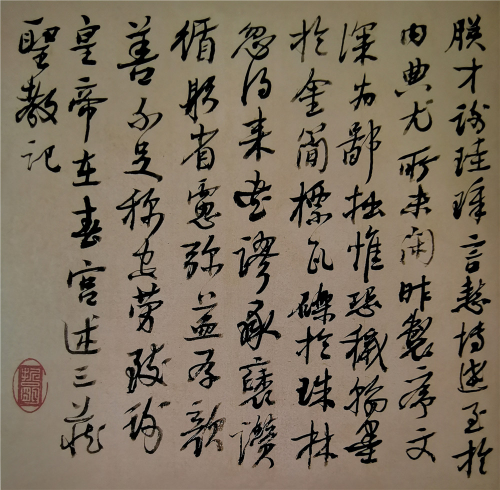 朕才謝珪璋言慙博達至於
內典尤所未閑昨製序文
深為鄙拙惟恐穢翰墨
於金簡標瓦礫於珠林
忽得來書謬承褒讚
循躬省慮彌益厚顏
善不足稱空勞致謝
皇帝在春宮述三藏
聖教記